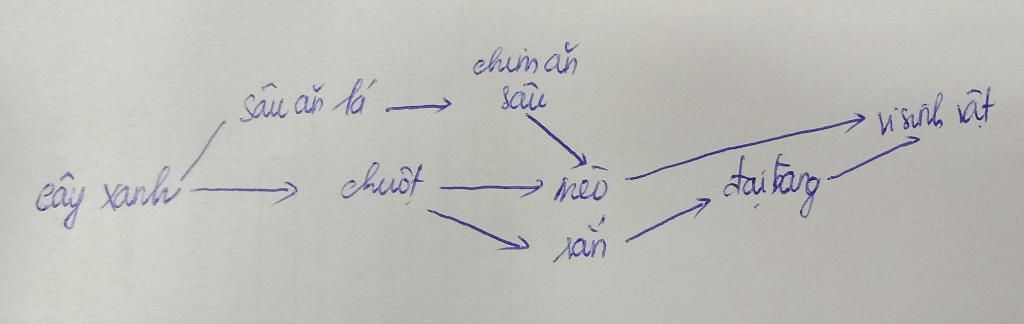 chim ăn
sâu ăn lá
sâu
vi sinh vật
cây xanh
chuột
mèo
đại bàng
rắn